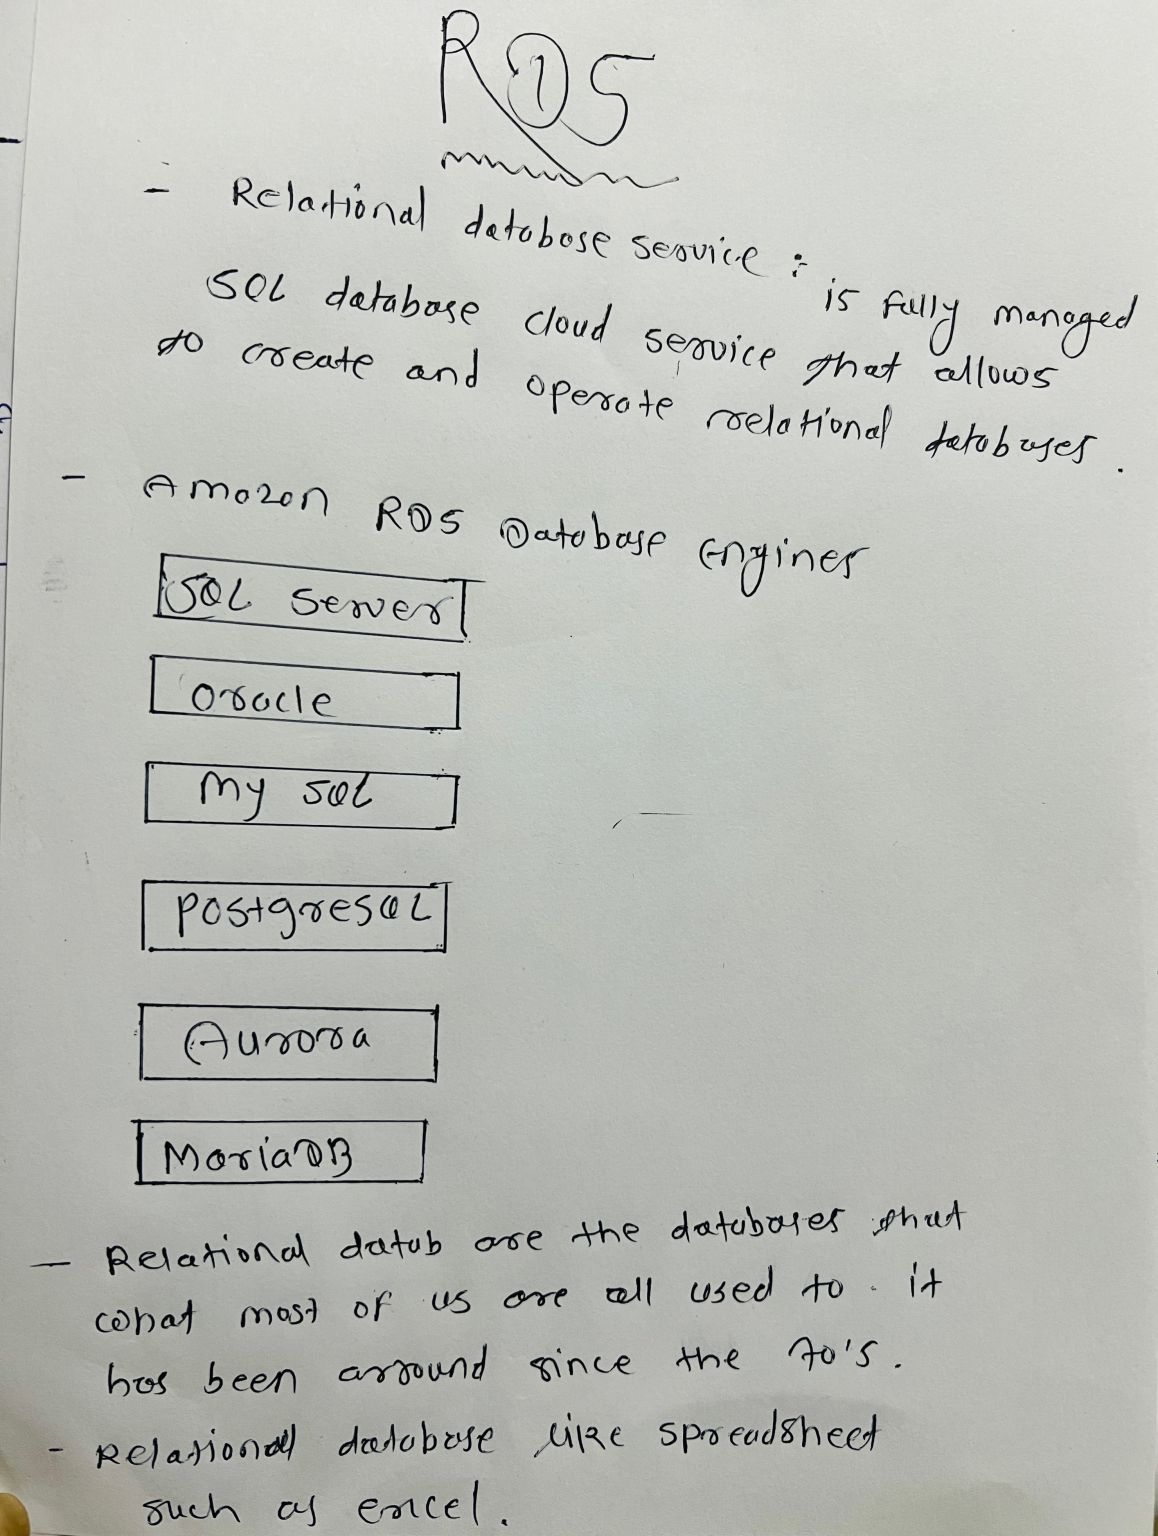 RDS
- Relational database service :- is fully managed
SQL database cloud service that allows
to create and operate relational databases.
- Amazon RDS Database Engines
SQL Server
Oracle
My SQL
PostgreSQL
Aurora
MariaDB
- Relational datab are the databases that
what most of us are all used to. it
has been arround since the 70's.
- Relational database like spreadsheet
such as excel.